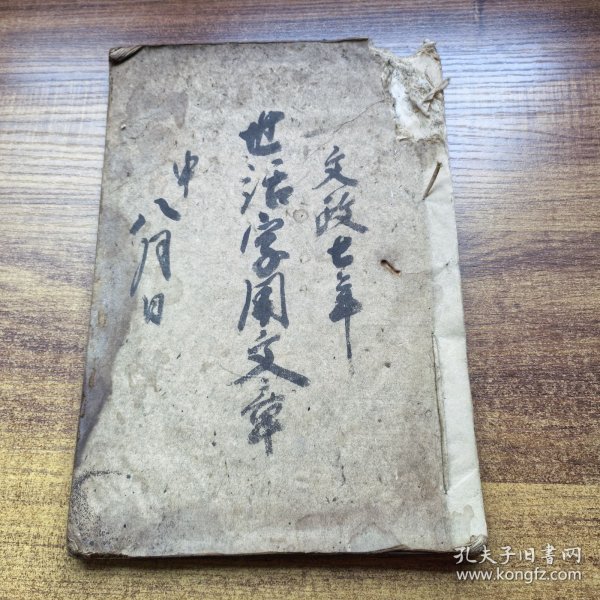 文政七年
世活字用文章
申八月日
孔夫子旧書网
www.kongfz.com